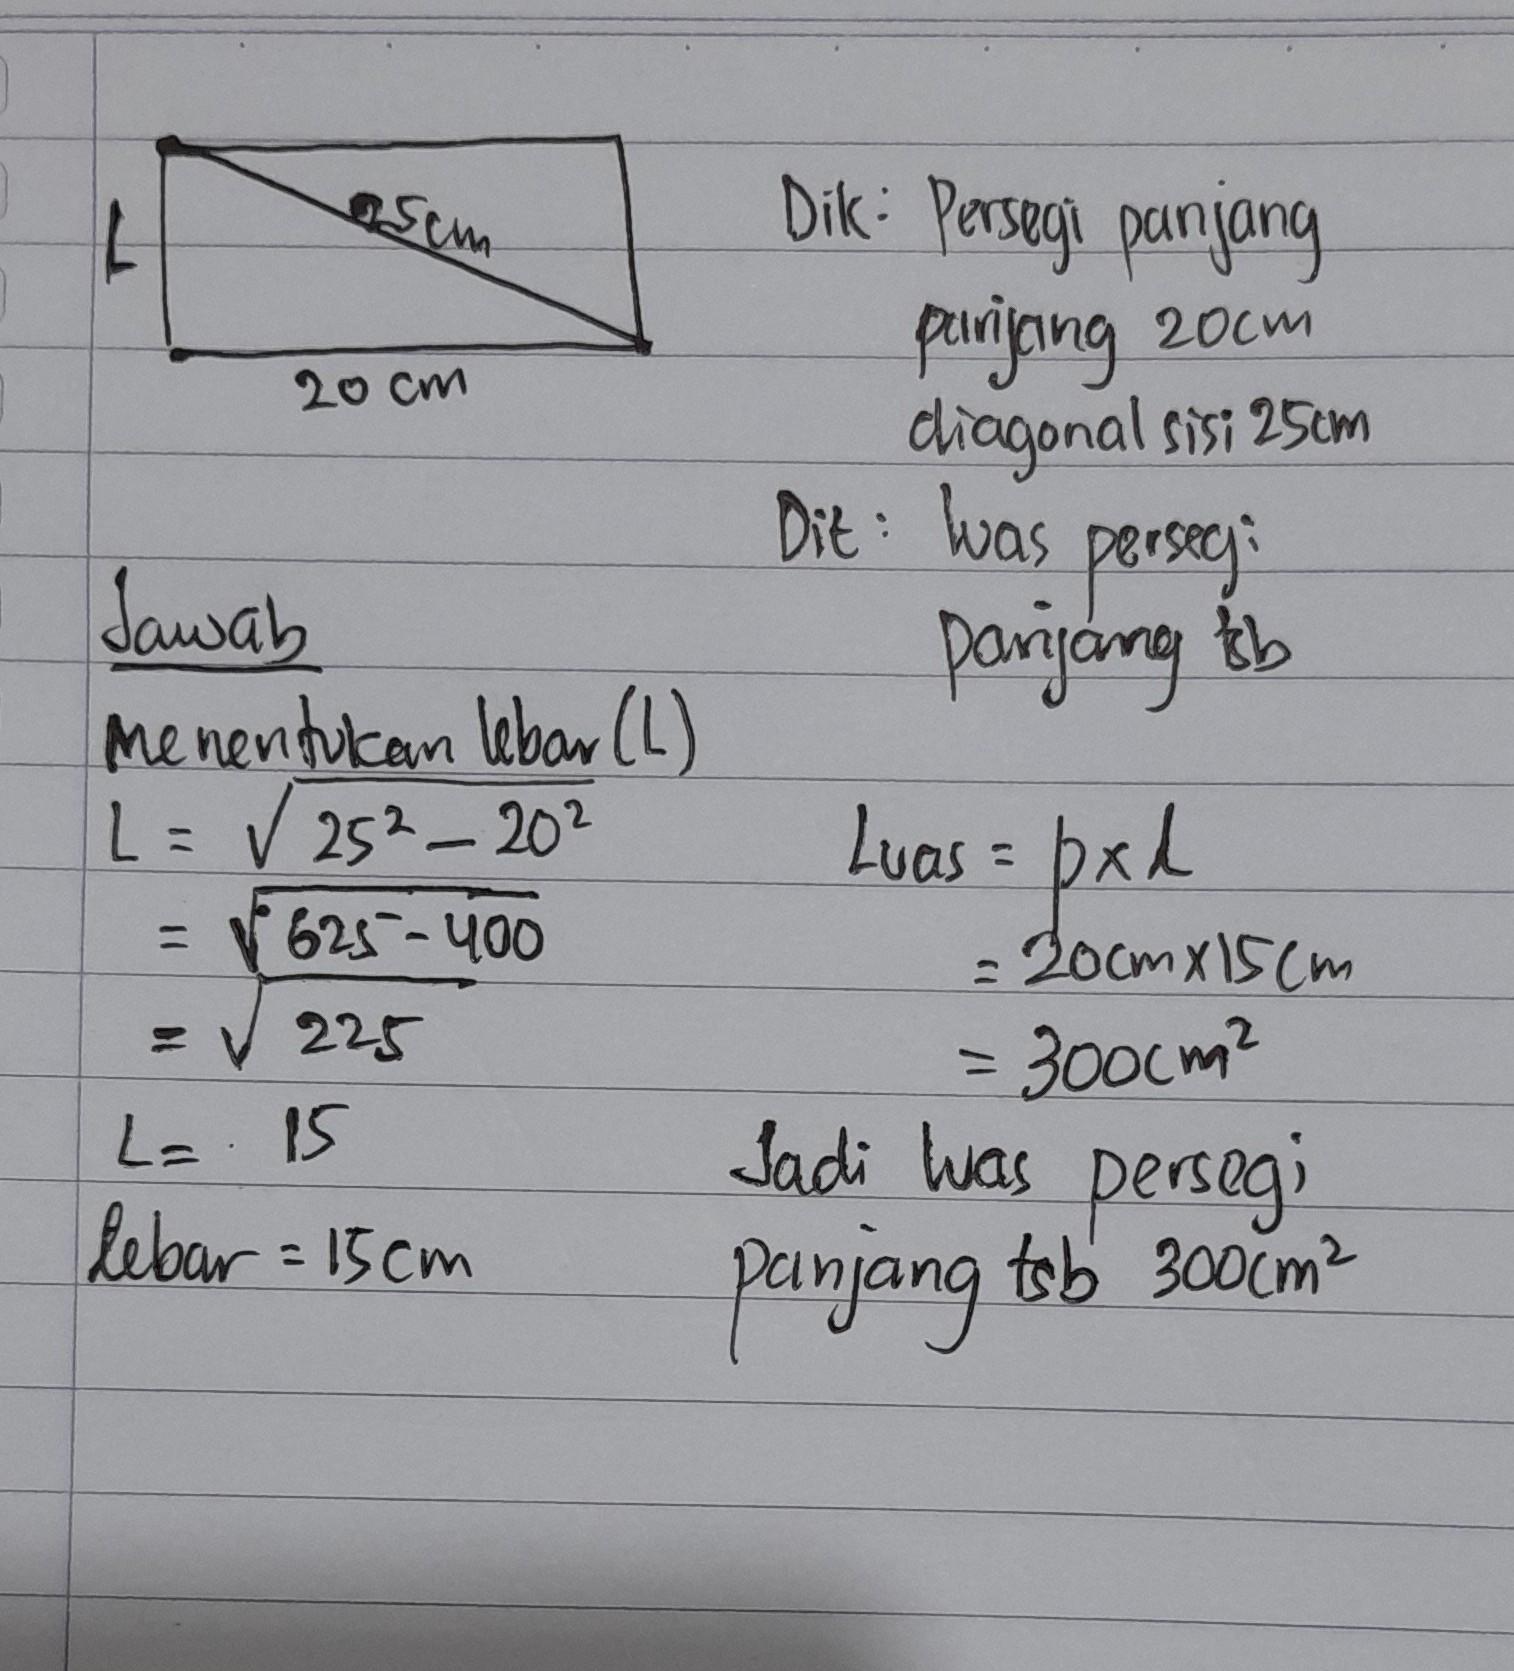 L
25cm
20 cm
Dik: Persegi panjang
panjang 20cm
diagonal sisi 25cm
Dit: luas persegi
panjang tsb
Jawab
Menentukan lebar (L)
L = √25² - 20²
= √625 - 400
= √225
L = 15
lebar = 15cm
Luas = p x l
= 20cm x 15cm
= 300cm²
Jadi luas persegi
panjang tsb 300cm²